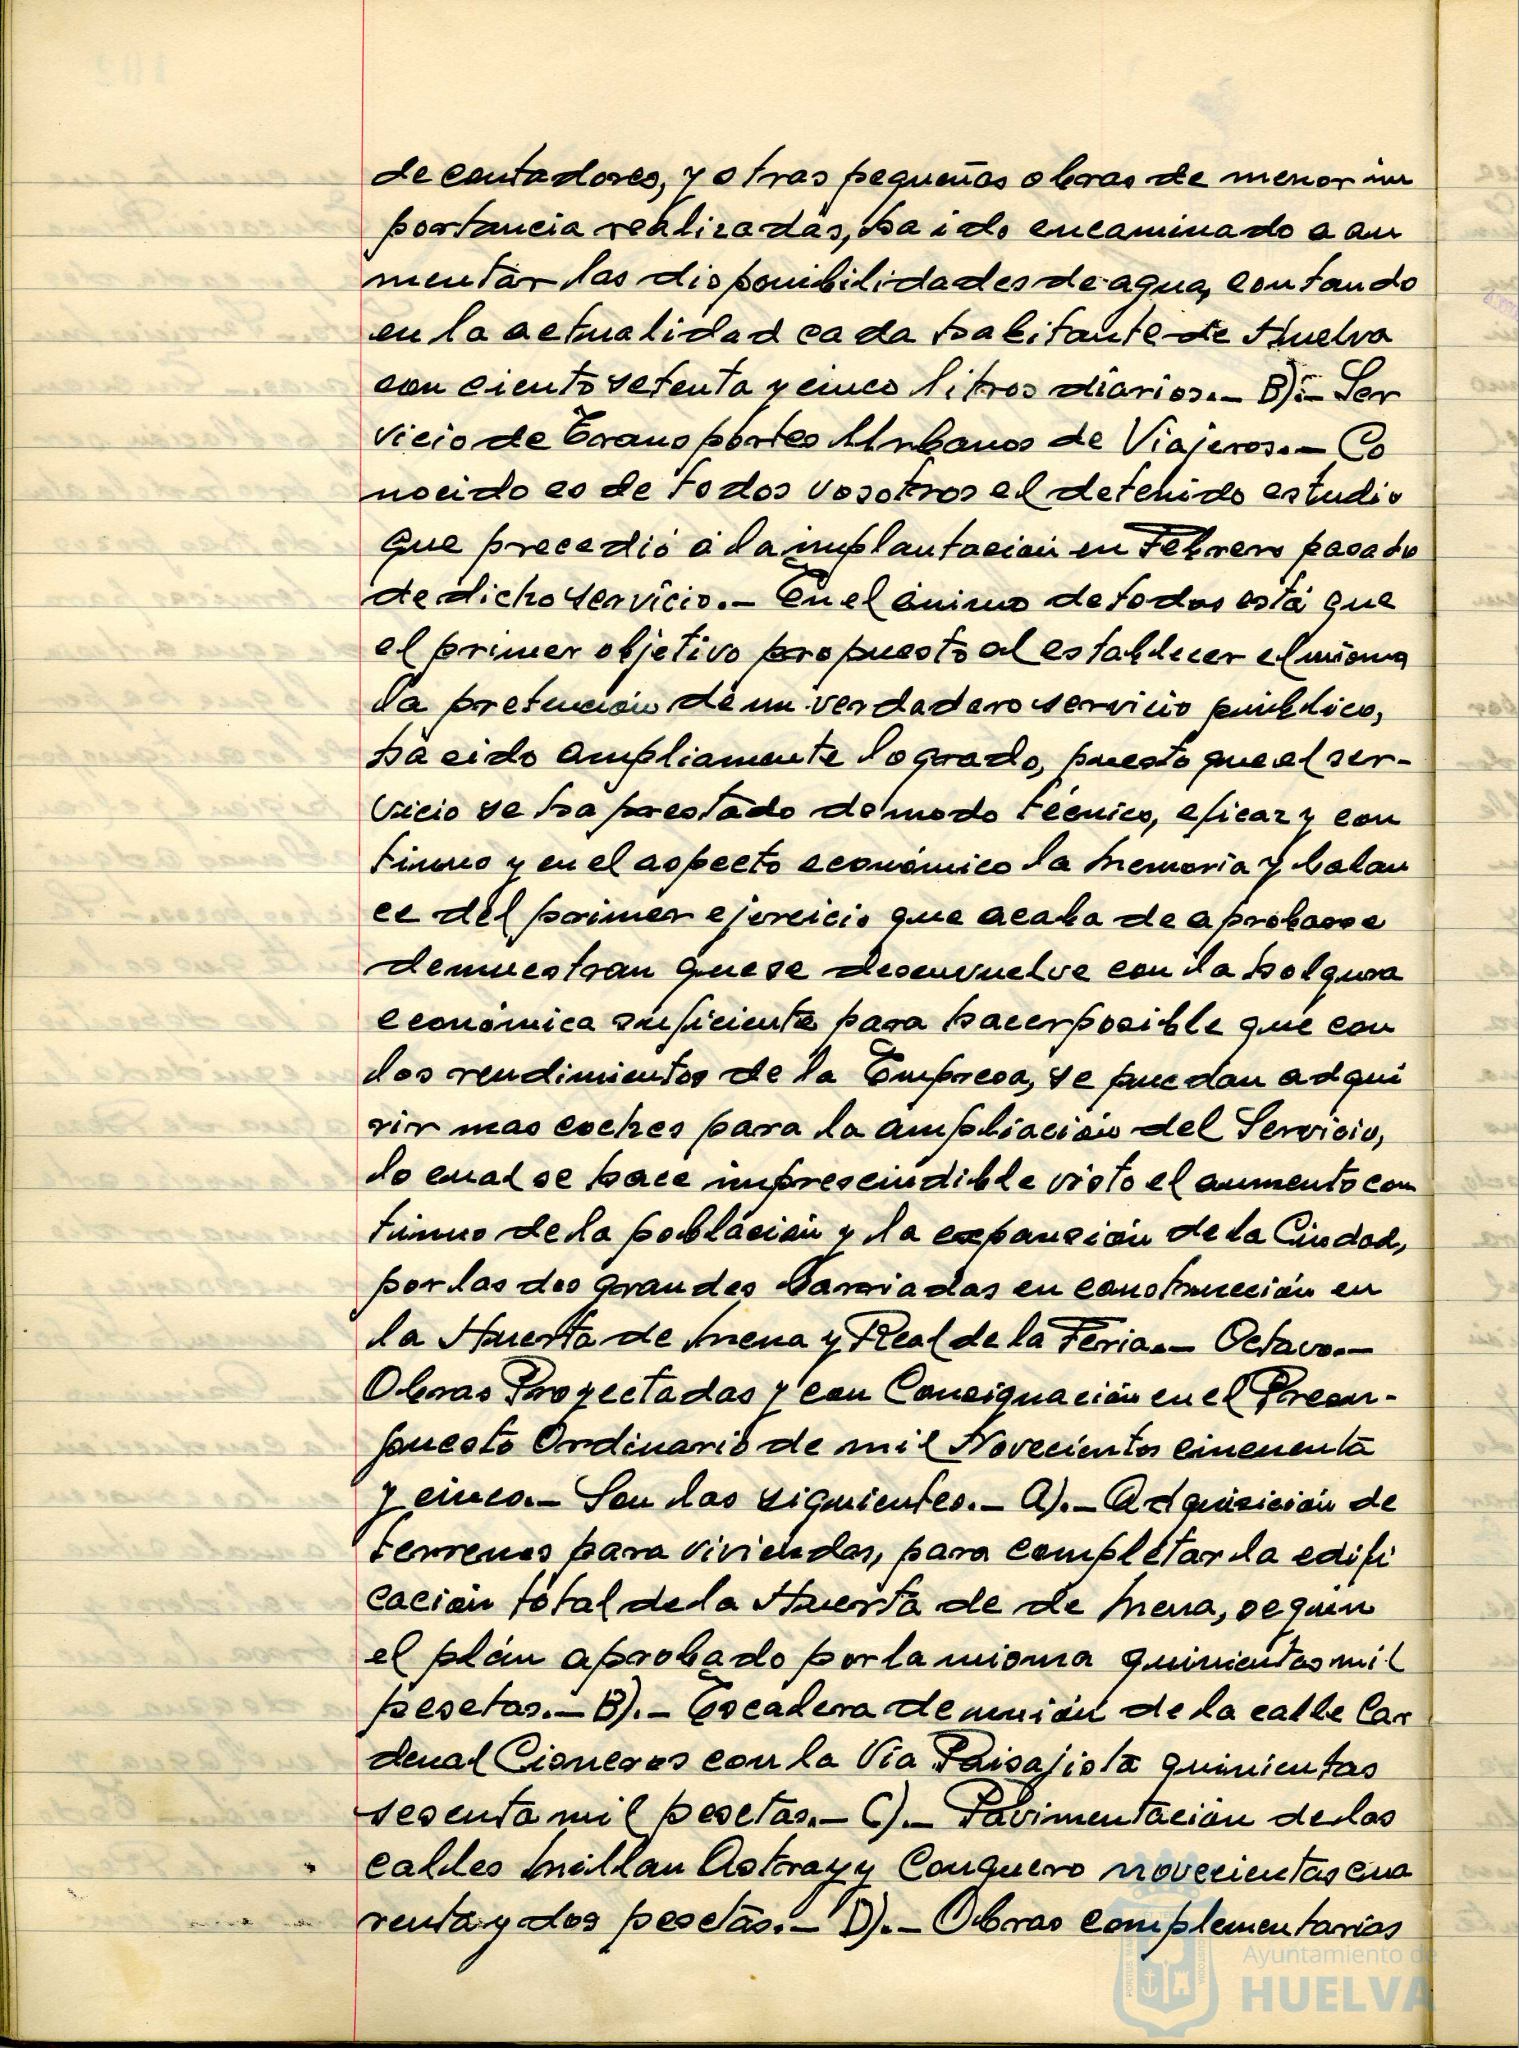 de contadores, y otras pequeñas obras de menor im
portancia realizadas, ha ido encaminado a au
mentar las disponibilidades de agua, contando
en la actualidad cada habitante de Huelva
con ciento setenta y cinco litros diarios.- B):- Ser
vicio de Transportes Urbanos de Viajeros.- Co
nocido es de todos vosotros el detenido estudio
que precedió a la implantación en Febrero pasado
de dicho servicio.- En el ánimo de todos está que
el primer objetivo propuesto al establecer el mismo
la pretención de un verdadero servicio público,
ha sido ampliamente logrado, puesto que el ser-
vicio se ha prestado de modo técnico, eficaz y con
tinuo y en el aspecto económico la Memoria y balan
ce del primer ejercicio que acaba de aprobarse
demuestran que se desenvuelve con la holgura
económica suficiente para hacer posible que con
los rendimientos de la Empresa, se puedan adqui
rir mas coches para la ampliación del Servicio,
lo cual se hace imprescindible visto el aumento con
tinuo de la población y la expansión de la Ciudad,
por las dos grandes barriadas en construcción en
la Huerta de Mena y Real de la Feria.- Octavo.-
Obras Proyectadas y con Consignación en el Presu-
puesto Ordinario de mil Novecientos cincuenta
y cinco.- Son las siguientes.- A).- Adquisición de
terrenos para viviendas, para completar la edifi
cación total de la Huerta de de Mena, según
el plán aprobado por la misma quinientas mil
pesetas.- B).- Escalera de unión de la calle Car
denal Cisneros con la Vía Paisajista quinientas
sesenta mil pesetas.- C).- Pavimentación de las
calles Millan Astray y Conquero novecientas cua
renta y dos pesetas.- D).- Obras complementarias
Ayuntamiento de
HUELVA